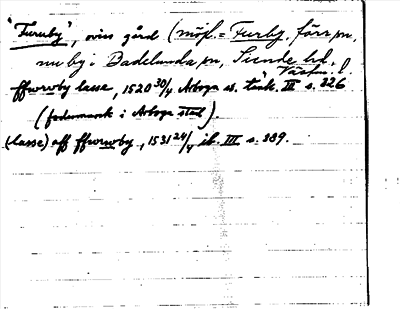 "Furuby", oviss gård (möjl. = Furby, förr sn,
nu by i Badelunda sn, Siende hd,
Västm. l.
ffwrwby lasse, 1520 30/4 Arboga st. tänk. III s. 326
( i Arboga stad).
(lasse) aff ffwrwby, 1531 24/4 ib. III s. 389.